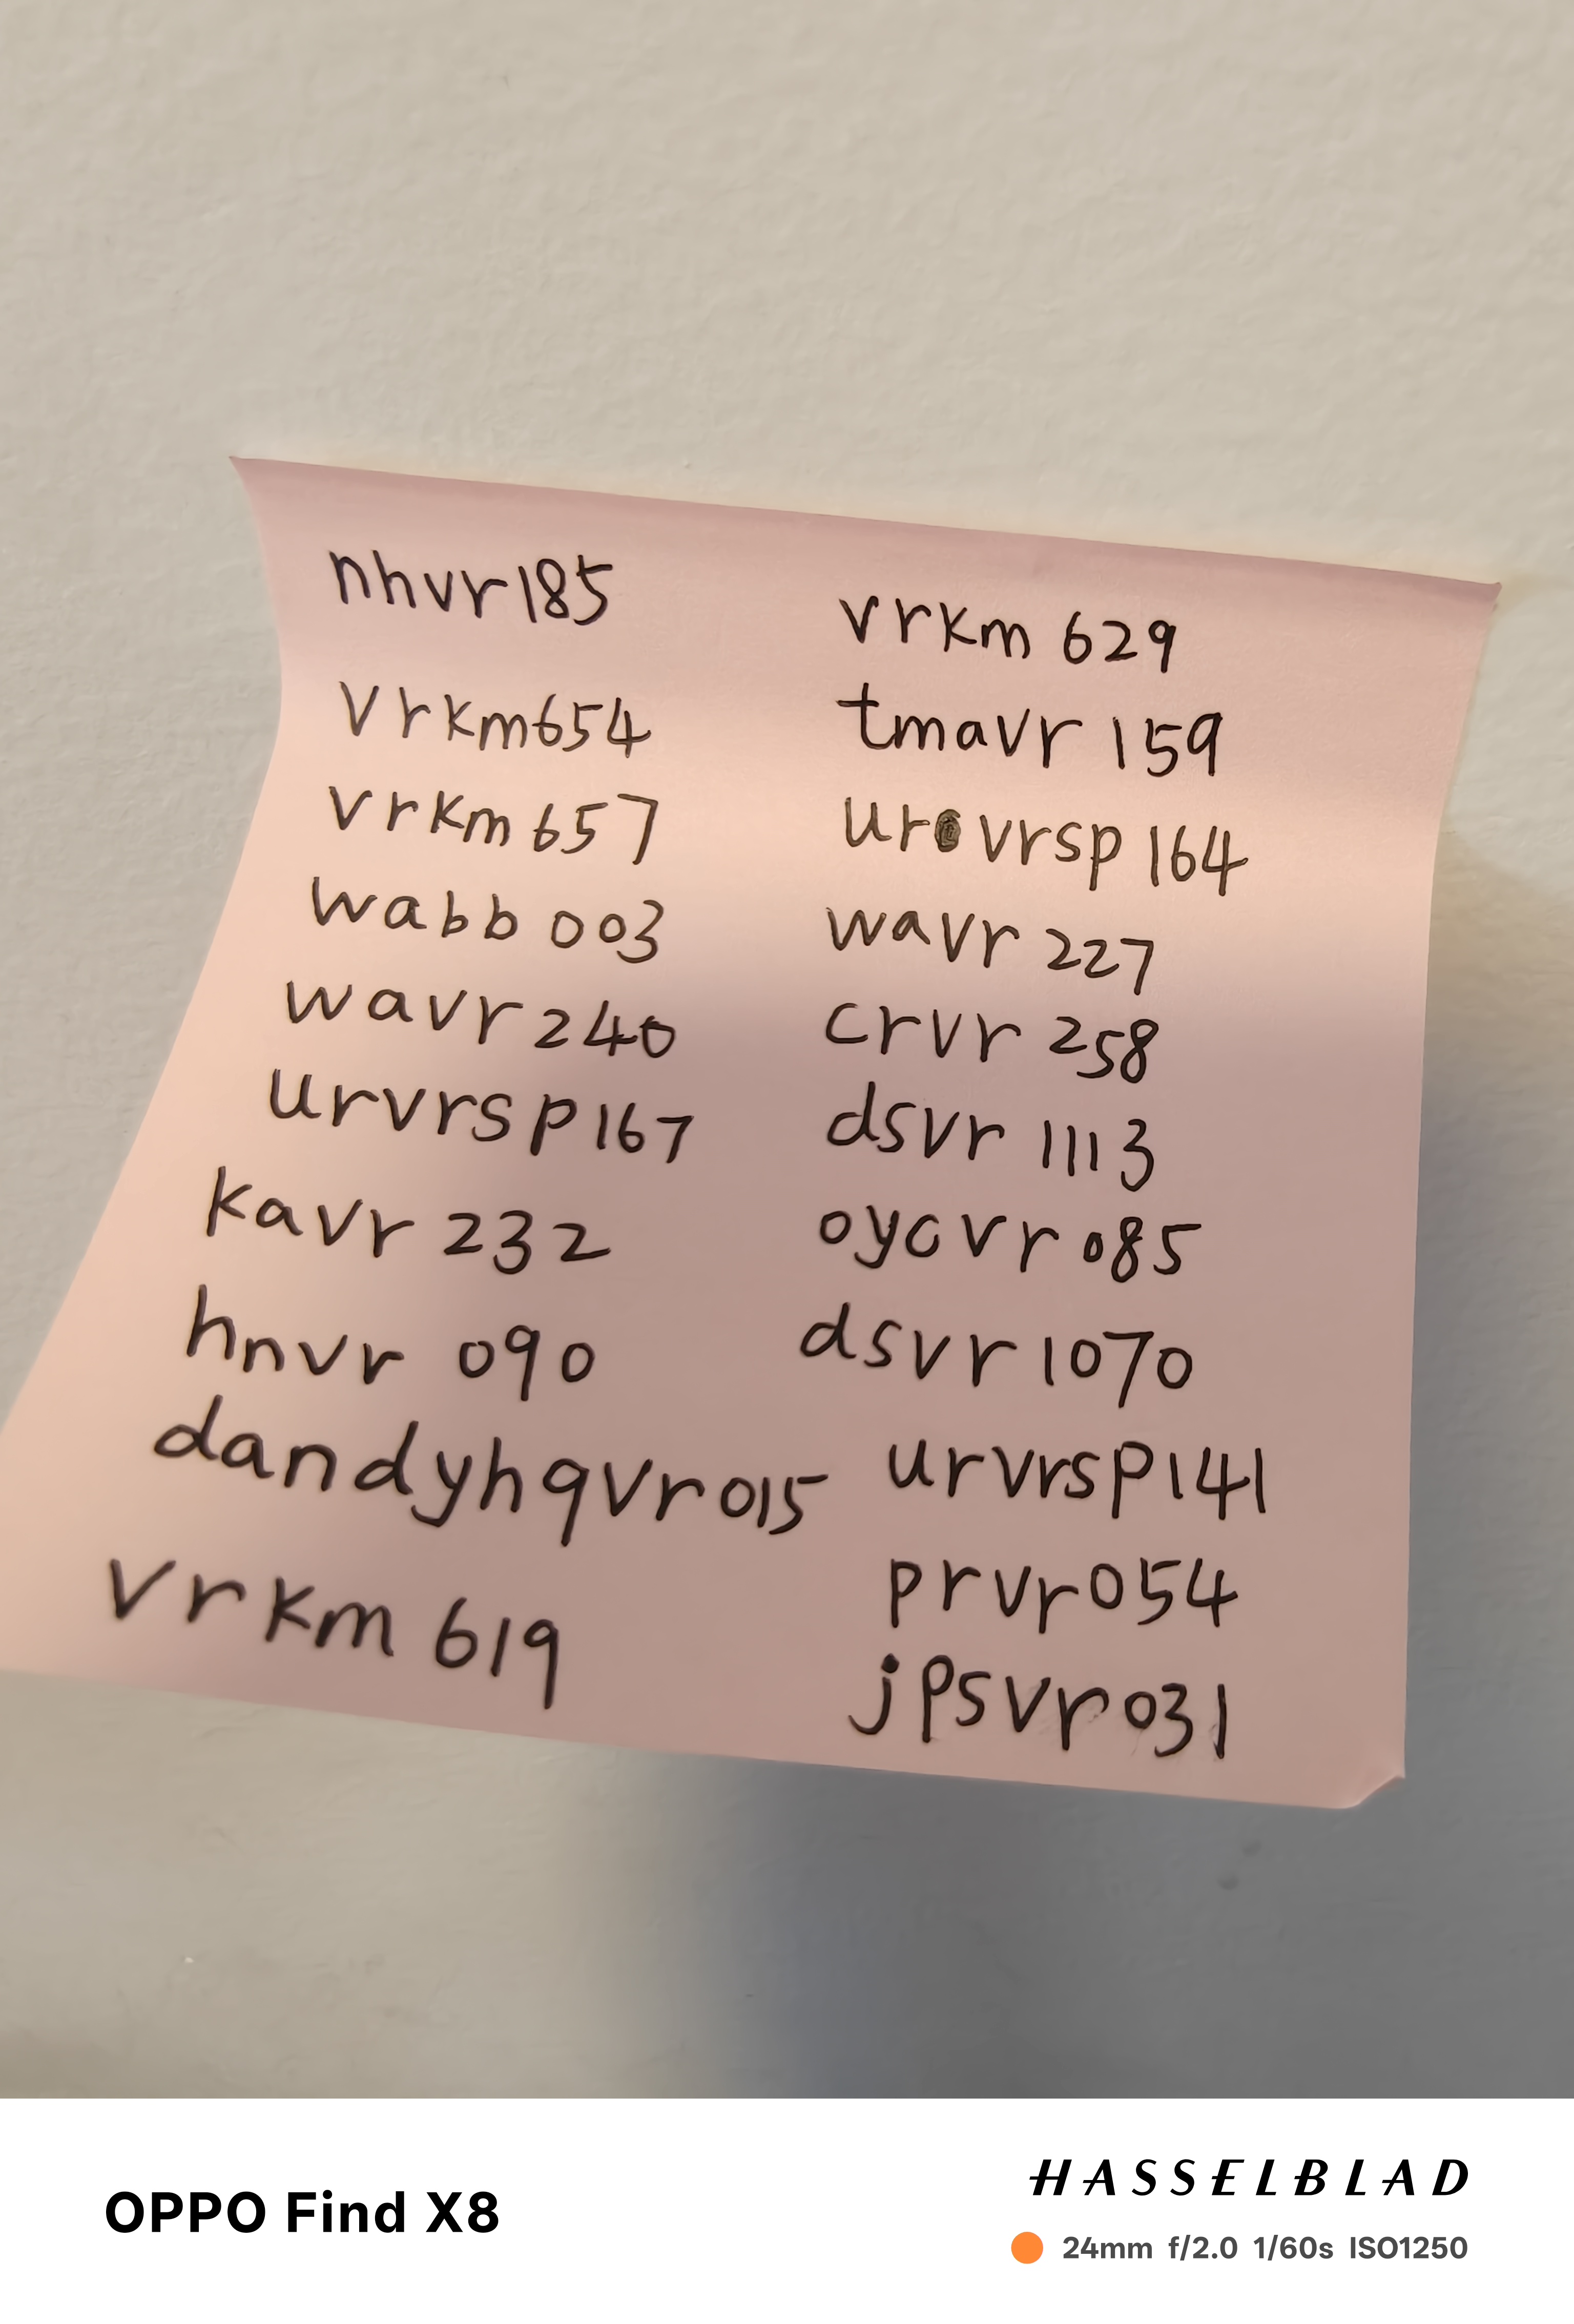 nhvr185
vrkm654
vrkm657
wabb003
wavr240
urvrsp167
kavr232
hnvr 090
dandyhqvr015
vrkm 619
vrkm 629
tmavr 159
ur vrsp 164
wavr 227
crvr 258
dsvr 1113
oycvr 085
dsvr 1070
urvrsp141
prvr054
jpsvr031
OPPO Find X8
HASSELBLAD
24mm f/2.0 1/60s ISO1250